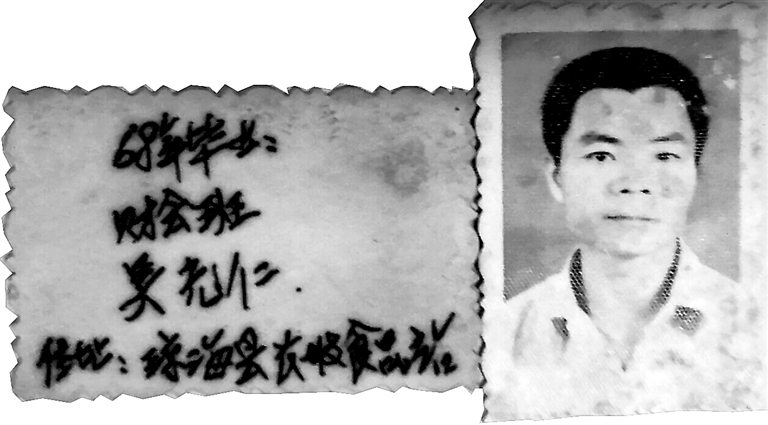 68年毕业：
财会班
吴光仁.
住址：琼海县农收食品站